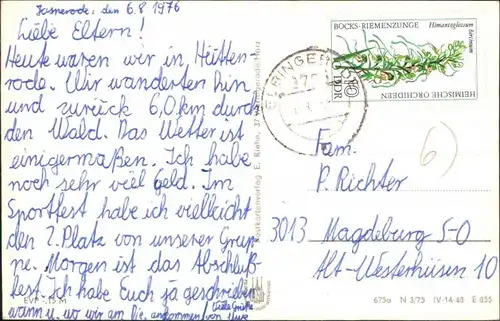 Hasserode, den 6.8 1976
Liebe Eltern!
Heute waren wir in Hütten-
rode. Wir wanderten hin
und zurück 6,0km durch
den Wald. Das Wetter ist
einigermaßen. Ich habe
noch sehr viel Geld. Im
Sportfest habe ich vielleicht
den 2. Platz von unserer Grup-
pe. Morgen ist das Abschluß-
fest. Ich habe Euch ja geschrieben
wann u. wo wir am ankommen.
Viele Grüße
von Uwe
EVP M
BOCKS-RIEMENZUNGE
Himantoglossum
hircinum
HEIMISCHE ORCHIDEEN
DDR
Fam.
P. Richter
3013 Magdeburg S-O
Alt-Westerhüsen 10
6)
675a N 3/75 IV-14-48 E 855